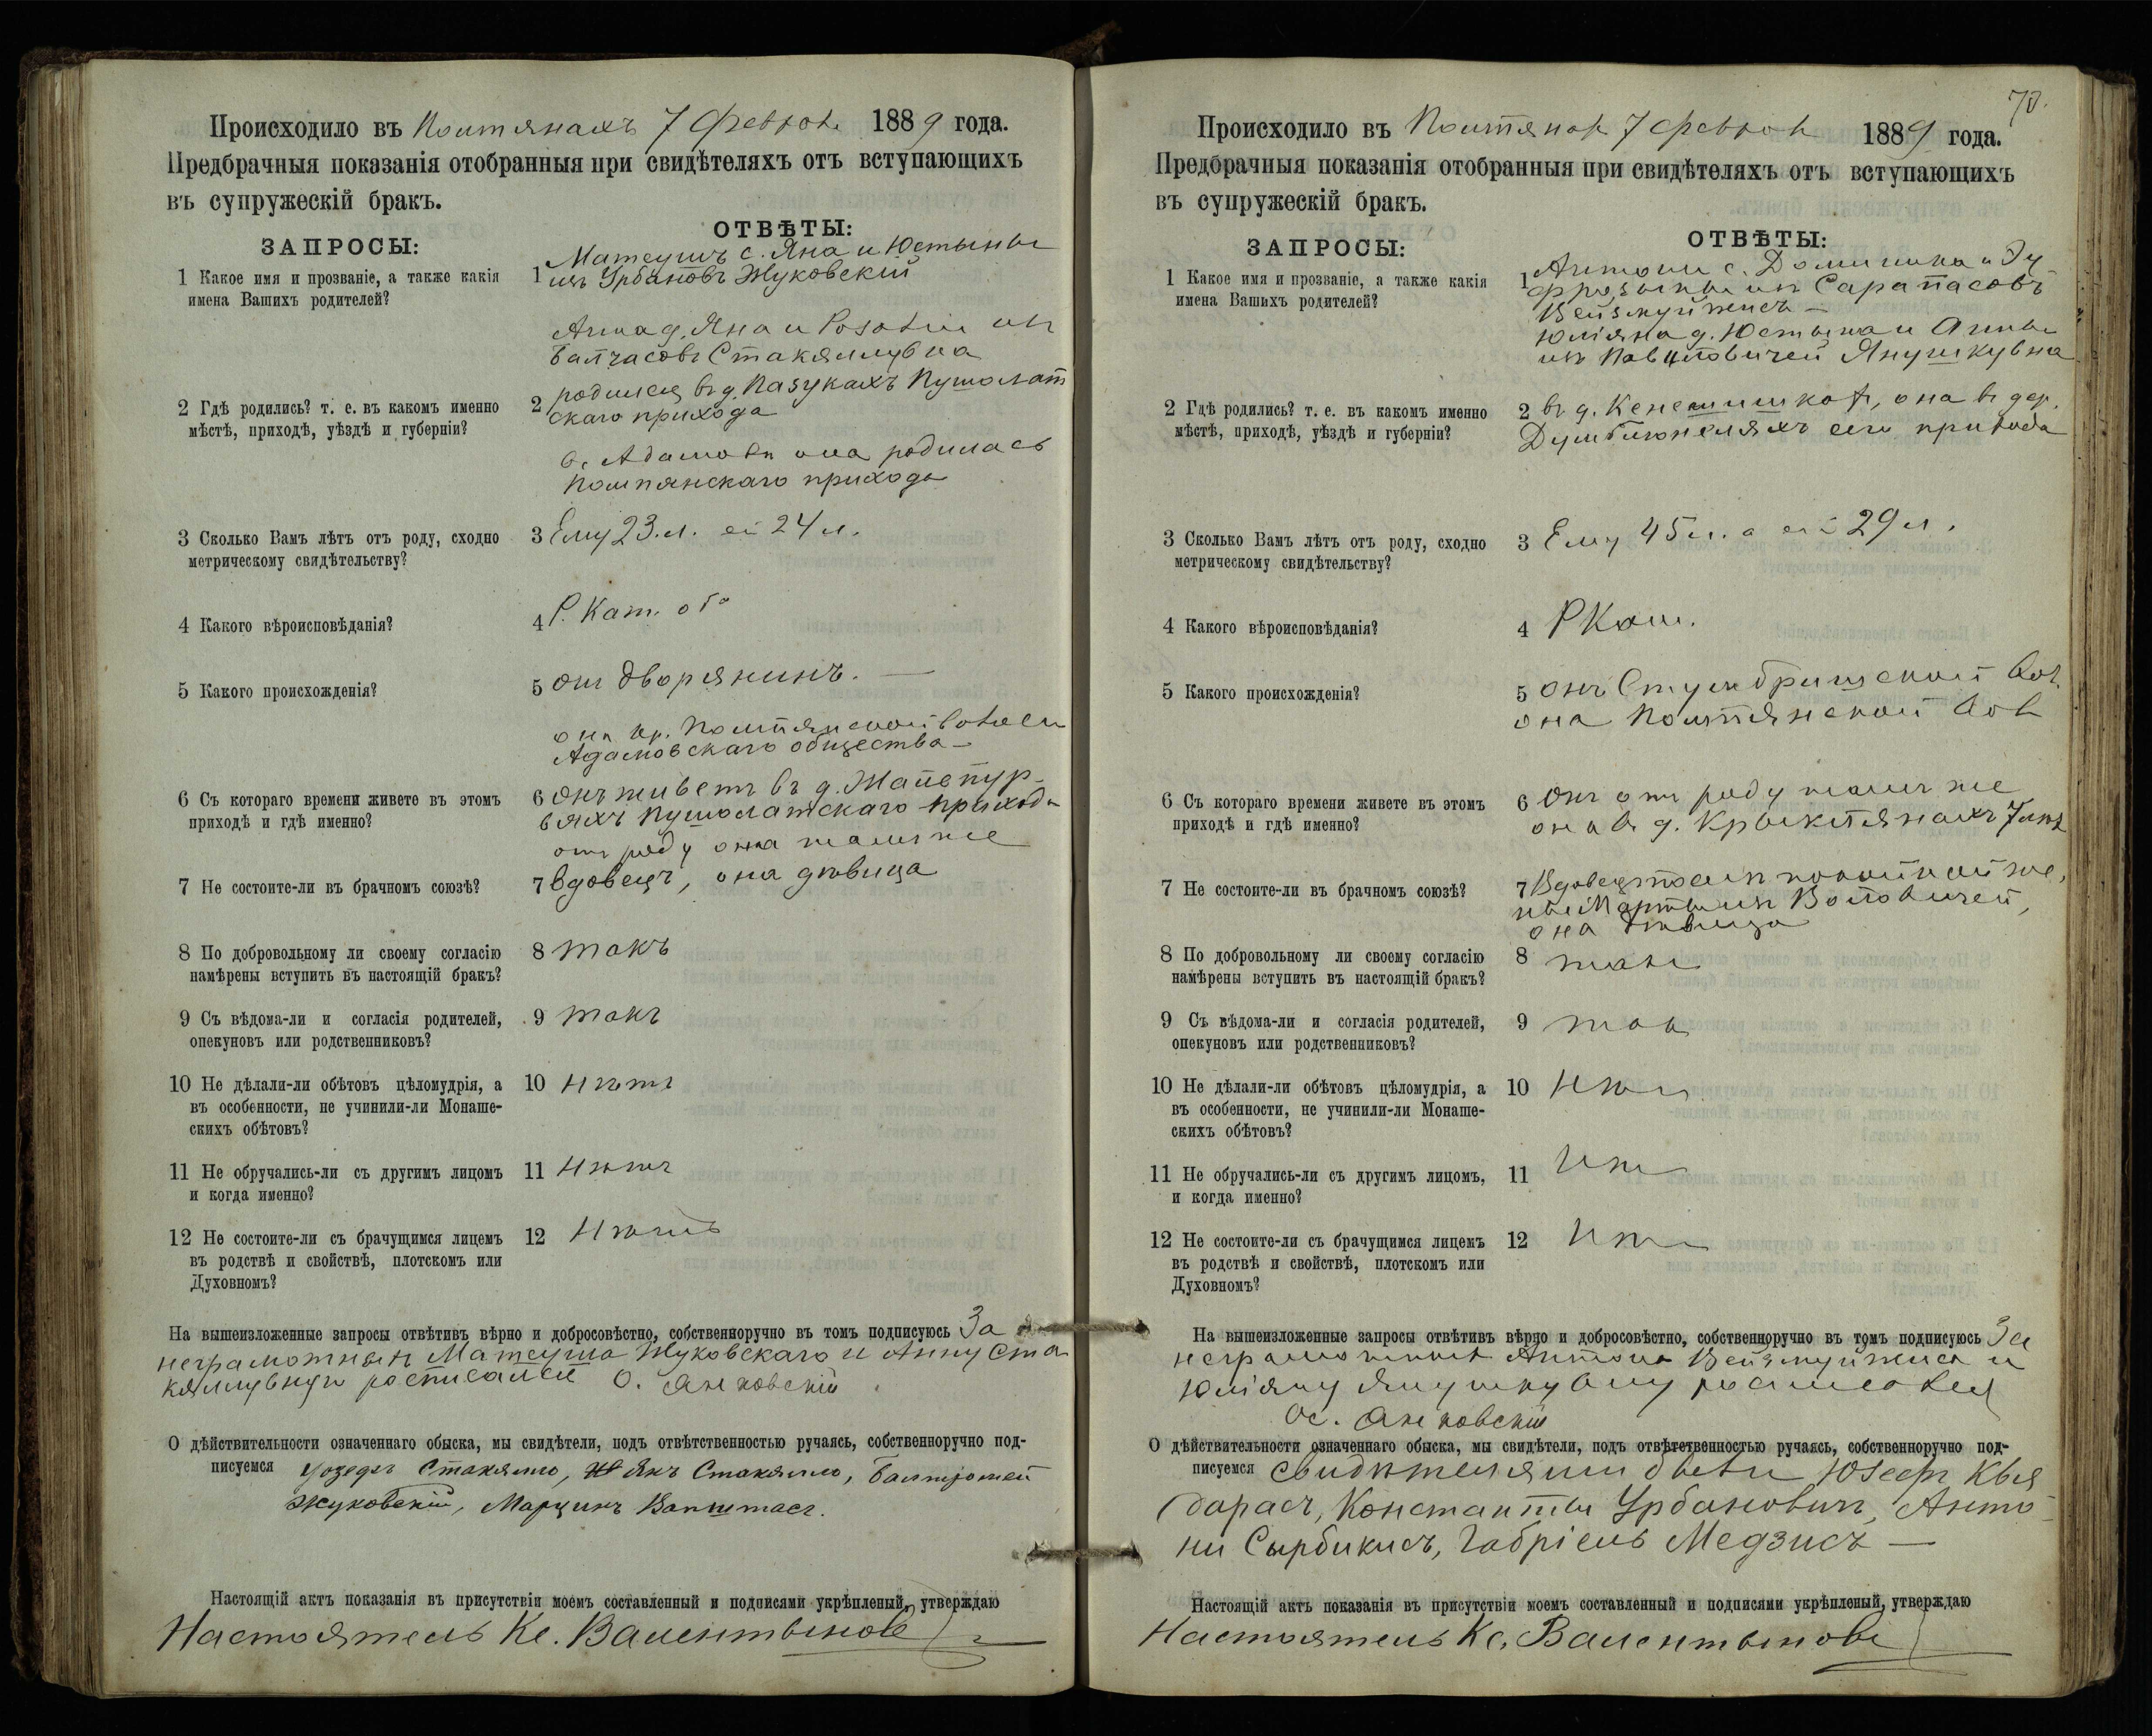 Происходило въ Помпянахъ 7 Феврал 1889 года.
Предбрачныя показанія отобранныя при свидѣтеляхъ отъ вступающихъ
въ супружескій бракъ.
ЗАПРОСЫ:
ОТВѢТЫ:
1 Какое имя и прозваніе, а также какія
имена Вашихъ родителей?
1 Матеушъ с. Яна и Юстыны
изъ Урбановъ Жуковскій
Анна д. Яна и Розаліи
Стакяллувна
2 Гдѣ родились? т. е. въ какомъ именно
мѣстѣ, приходѣ, уѣздѣ и губерніи?
2 родился въ д. Пазукахъ Пушолат
скаго прихода
в. Адамовѣ она родилась
Помпянскаго прихода
3 Сколько Вамъ лѣтъ отъ роду, сходно
метрическому свидѣтельству?
3 Ему 23.л. ей 24 л.
4 Какого вѣроисповѣданія?
4 Р. Кат. об
5 Какого происхожденія?
5 онъ дворянинъ. —
она кр. Помпянской волости
Адамовскаго общества —
6 Съ котораго времени живете въ этомъ
приходѣ и гдѣ именно?
6 Онъ живетъ въ д.
Пушолатскаго прихода
отъ роду она тамъ же
7 Не состоите-ли въ брачномъ союзѣ?
7 вдовецъ, она дѣвица
8 По добровольному ли своему согласію
намѣрены вступить въ настоящій бракъ?
8 такъ
9 Съ вѣдома-ли и согласія родителей,
опекуновъ или родственниковъ?
9 такъ
10 Не дѣлали-ли обѣтовъ цѣломудрія, а
въ особенности, не учинили-ли Монаше-
скихъ обѣтовъ?
10 нѣтъ
11 Не обручались-ли съ другимъ лицомъ
и когда именно?
11 нѣтъ
12 Не состоите-ли съ брачущимся лицемъ
въ родствѣ и свойствѣ, плотскомъ или
Духовномъ?
12 Нѣтъ
На вышеизложенные запросы отвѣтивъ вѣрно и добросовѣстно, собственноручно въ томъ подписуюсь За
неграмотныхъ Матеуша Жуковскаго и Анну Ста
кяллувную росписался О. Янковскій
О дѣйствительности означеннаго обыска, мы свидѣтели, подъ отвѣтственностью ручаясь, собственноручно под-
писуемся Іозефъ Стакялло, Янъ Стакялло, Балтромей
Жуковскій, Марцинъ Вапштасъ.
Настоящій актъ показанія въ присутствіи моемъ составленный и подписями укрѣпленый, утверждаю
Настоятель Кс. Валентынов
70.
Происходило въ Помпянах 7 Феврал 1889 года.
Предбрачныя показанія отобранныя при свидѣтеляхъ отъ вступающихъ
въ супружескій бракъ.
ЗАПРОСЫ:
ОТВѢТЫ:
1 Какое имя и прозваніе, а также какія
имена Вашихъ родителей?
1 Антони с. Доминика и
изъ Сарапасовъ
Вейзмуйжисъ —
Юліяна д. Юстына и Анны
Янушкувна
2 Гдѣ родились? т. е. въ какомъ именно
мѣстѣ, приходѣ, уѣздѣ и губерніи?
2 въ д. Кенешишках, она въ дер.
Думблюнеляхъ сего прихода
3 Сколько Вамъ лѣтъ отъ роду, сходно
метрическому свидѣтельству?
3 Ему 45 л. а ей 29 л.
4 Какого вѣроисповѣданія?
4 Р Кат.
5 Какого происхожденія?
5 онъ Стумбришской Вол.
она Помпянской Вол
6 Съ котораго времени живете въ этомъ
приходѣ и гдѣ именно?
6 Онъ отъ роду тамъ же
она въ д. Крыклянахъ 7 лѣт
7 Не состоите-ли въ брачномъ союзѣ?
7 Вдовец по покойной же
ны
она дѣвица
8 По добровольному ли своему согласію
намѣрены вступить въ настоящій бракъ?
8 такъ
9 Съ вѣдома-ли и согласія родителей,
опекуновъ или родственниковъ?
9 так
10 Не дѣлали-ли обѣтовъ цѣломудрія, а
въ особенности, не учинили-ли Монаше-
скихъ обѣтовъ?
10 нѣт
11 Не обручались-ли съ другимъ лицомъ,
и когда именно?
11 нѣт
12 Не состоите-ли съ брачущимся лицемъ
въ родствѣ и свойствѣ, плотскомъ или
Духовномъ?
12 нѣт
На вышеизложенные запросы отвѣтивъ вѣрно и добросовѣстно, собственноручно въ томъ подписуюсь За
неграмотныхъ Антона Вейзмуйжиса и
Юліяну Янушкувну росписался
Ос. Янковскій
О дѣйствительности означеннаго обыска, мы свидѣтели, подъ отвѣтственностью ручаясь, собственноручно под-
писуемся свидѣтелями были Юзефъ Квя
дарасъ, Константы Урбановичъ, Анто
ни Сырбикисъ, Габріель Медзисъ —
Настоящій актъ показанія въ присутствіи моемъ составленный и подписями укрѣпленый, утверждаю
Настоятель Кс. Валентынов